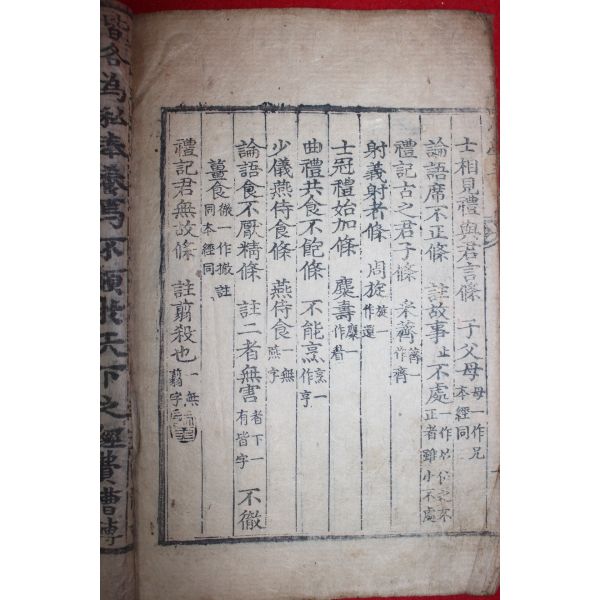 士相見禮與君言條 子父母母一作兄本經同
論語席不正條 註故事止不處一作於位之不正者雖小不處
禮記古之君子條 采薺薺一作齊
射義射者條 周旋旋一作還
士冠禮始加條 麋壽麋一作眉
曲禮共食不飽條 不能烹烹一作亨
少儀燕侍食條 燕侍食一無燕字
論語食不厭精條 註二者無害者下一有皆字 不徹
薑食徹一作撤註同本經同
禮記君無故條 註翦殺也一無翦字
皆各為私奉養焉不領於天下之經費漕轉